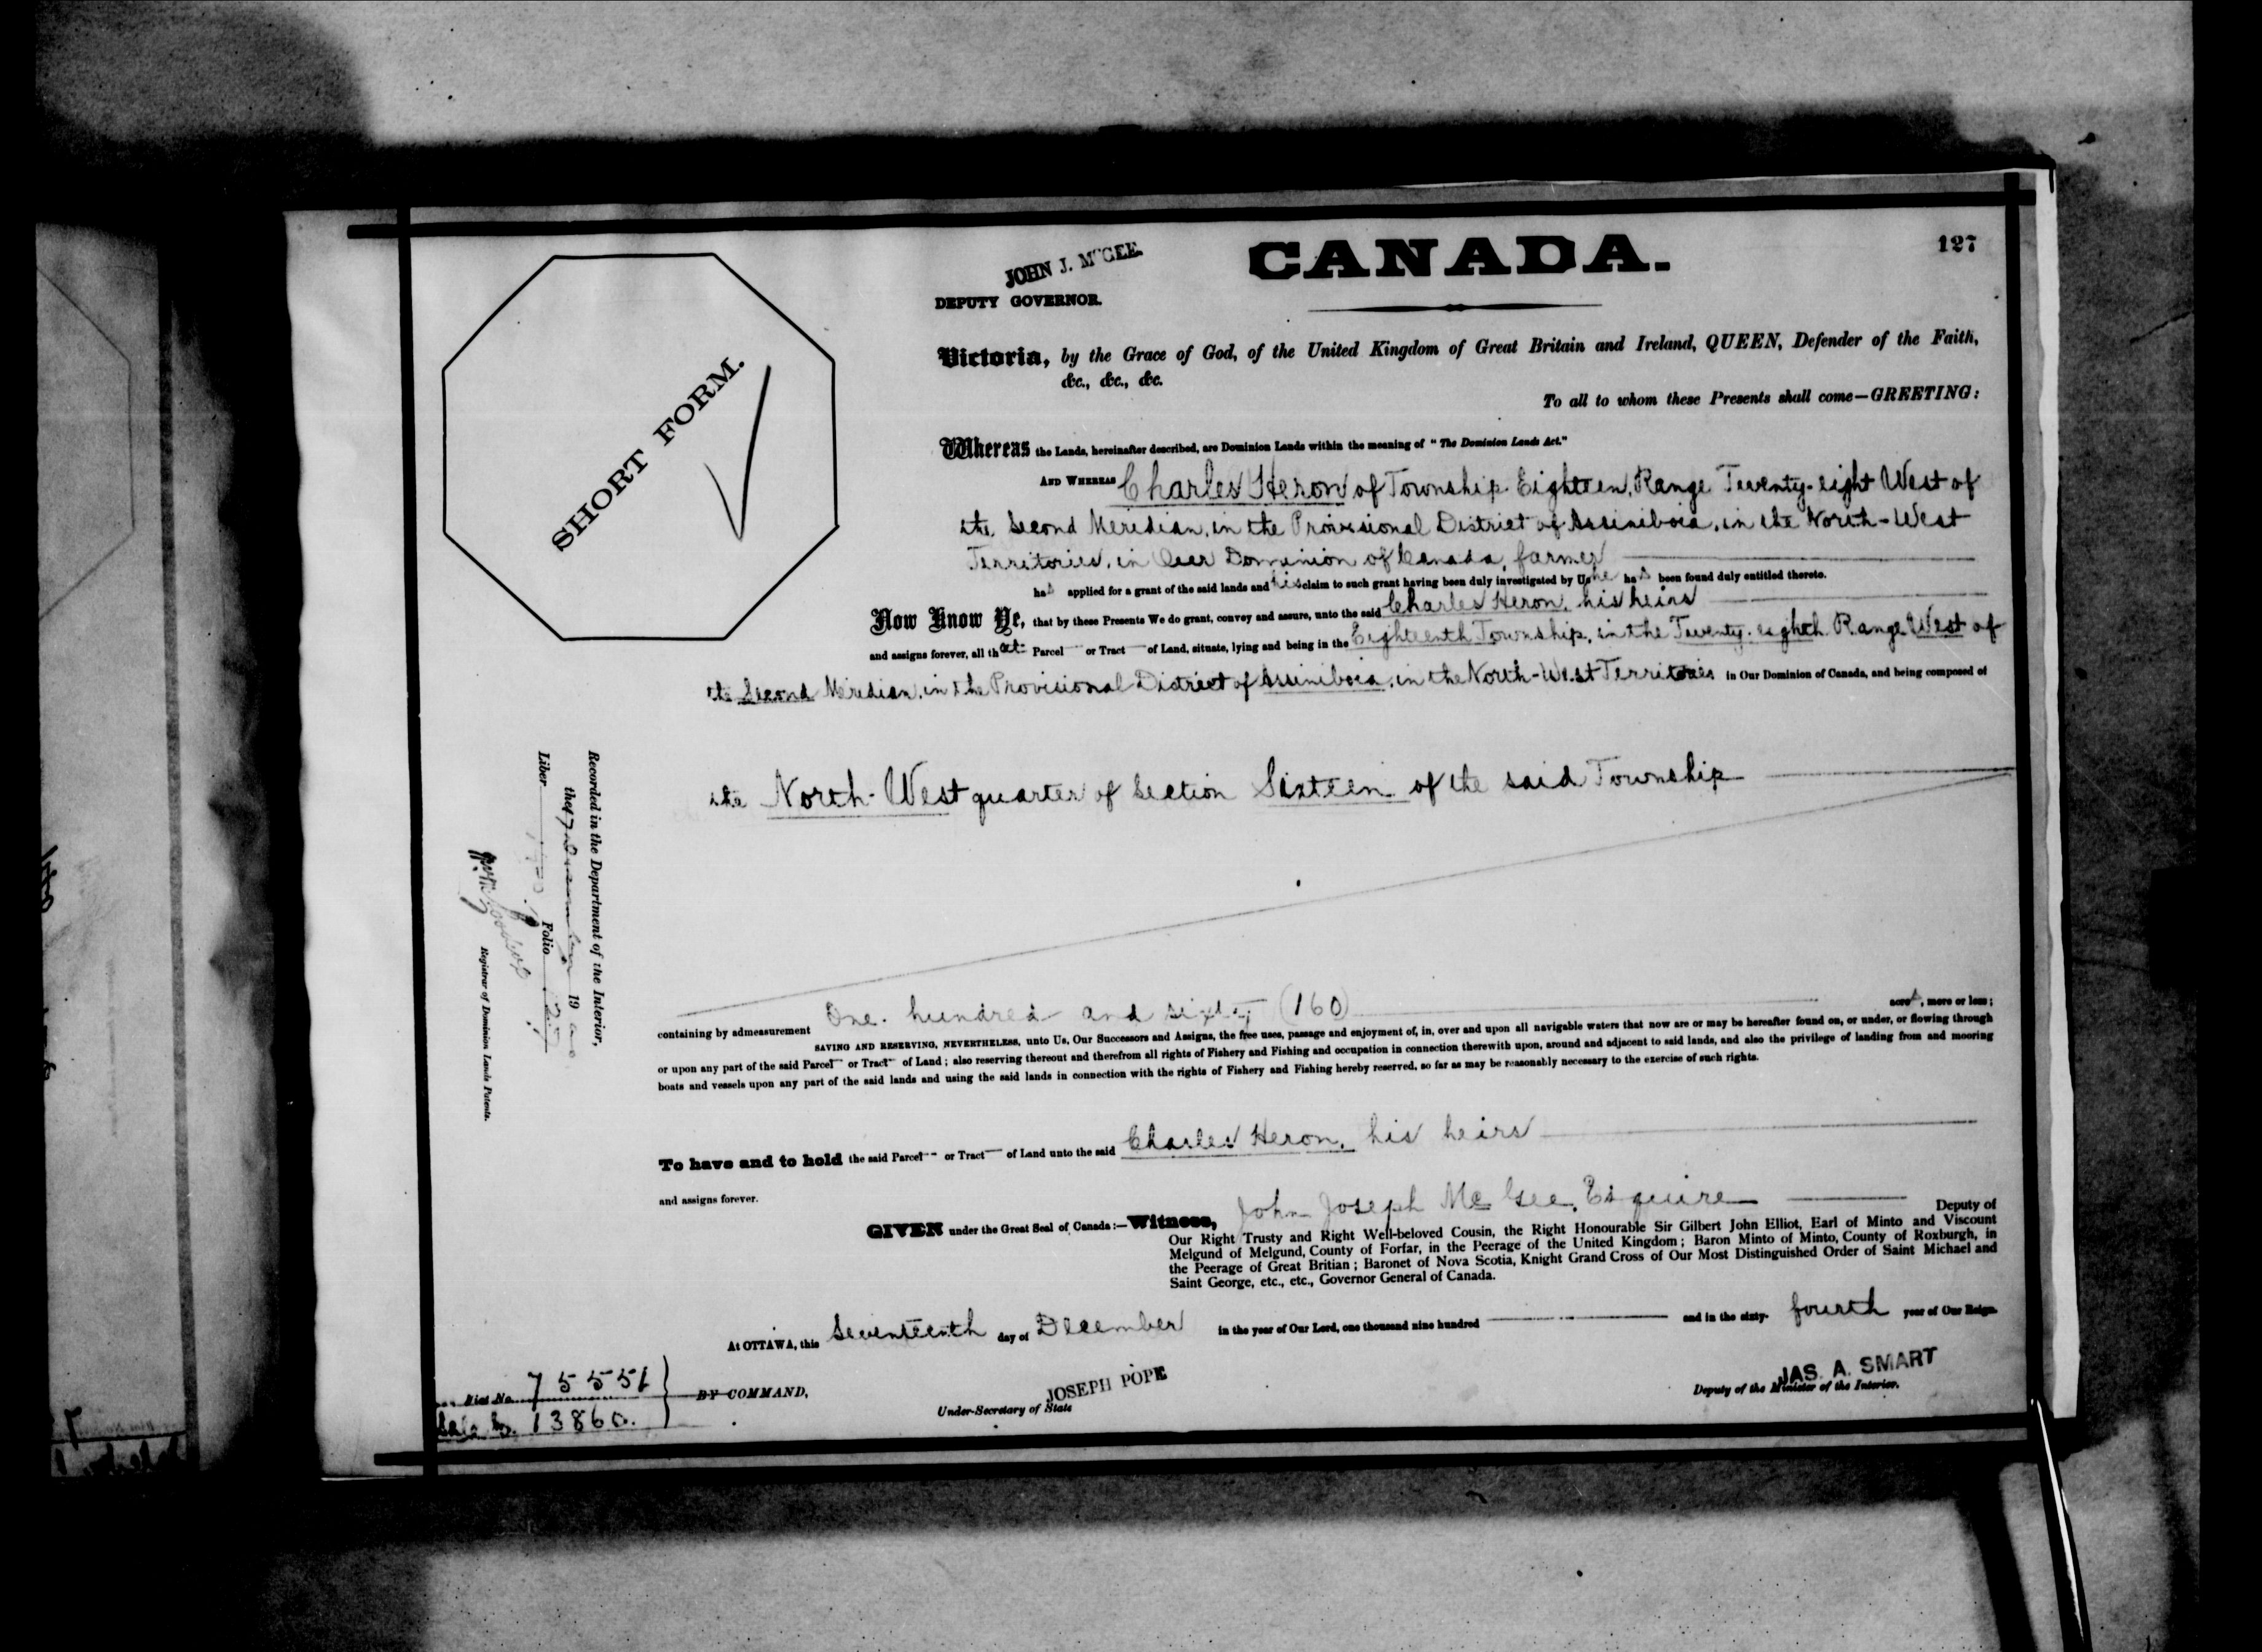 CANADA.
127
JOHN J. McGEE.
DEPUTY GOVERNOR.
SHORT FORM.
Victoria, by the Grace of God, of the United Kingdom of Great Britain and Ireland, QUEEN, Defender of the Faith,
&c., &c., &c.
To all to whom these Presents shall come—GREETING:
Whereas the Lands, hereinafter described, are Dominion Lands within the meaning of "The Dominion Lands Act."
AND WHEREAS Charles Heron of Township Eighteen, Range Twenty-eight West of
the Second Meridian, in the Provisional District of Assiniboia, in the North-West
Territories, in Our Dominion of Canada, farmer
has applied for a grant of the said lands and his claim to such grant having been duly investigated by Us he has been found duly entitled thereto.
Now Know Ye, that by these Presents We do grant, convey and assure, unto the said Charles Heron, his heirs
and assigns forever, all that Parcel or Tract of Land, situate, lying and being in the Eighteenth Township, in the Twenty-eighth Range West of
the Second Meridian, in the Provisional District of Assiniboia, in the North-West Territories in Our Dominion of Canada, and being composed of
the North-West quarter of Section Sixteen of the said Township
containing by admeasurement One hundred and sixty (160) acres, more or less;
SAVING AND RESERVING, NEVERTHELESS, unto Us, Our Successors and Assigns, the free uses, passage and enjoyment of, in, over and upon all navigable waters that now are or may be hereafter found on, or under, or flowing through
or upon any part of the said Parcel or Tract of Land; also reserving thereout and therefrom all rights of Fishery and Fishing and occupation in connection therewith upon, around and adjacent to said lands, and also the privilege of landing from and mooring
boats and vessels upon any part of the said lands and using the said lands in connection with the rights of Fishery and Fishing hereby reserved, so far as may be reasonably necessary to the exercise of such rights.
To have and to hold the said Parcel or Tract of Land unto the said Charles Heron, his heirs
and assigns forever.
GIVEN under the Great Seal of Canada:—Witness, John Joseph McGee, Esquire Deputy of
Our Right Trusty and Right Well-beloved Cousin, the Right Honourable Sir Gilbert John Elliot, Earl of Minto and Viscount
Melgund of Melgund, County of Forfar, in the Peerage of the United Kingdom; Baron Minto of Minto, County of Roxburgh, in
the Peerage of Great Britian; Baronet of Nova Scotia, Knight Grand Cross of Our Most Distinguished Order of Saint Michael and
Saint George, etc., etc., Governor General of Canada.
At OTTAWA, this seventeenth day of December in the year of Our Lord, one thousand nine hundred and in the sixty-fourth year of Our Reign.
75551
13860.
BY COMMAND,
JOSEPH POPE
Under-Secretary of State
JAS. A. SMART
Deputy of the Minister of the Interior.
Recorded in the Department of the Interior,
the 17 December 19
Liber Folio
Registrar of Dominion Lands Patents.